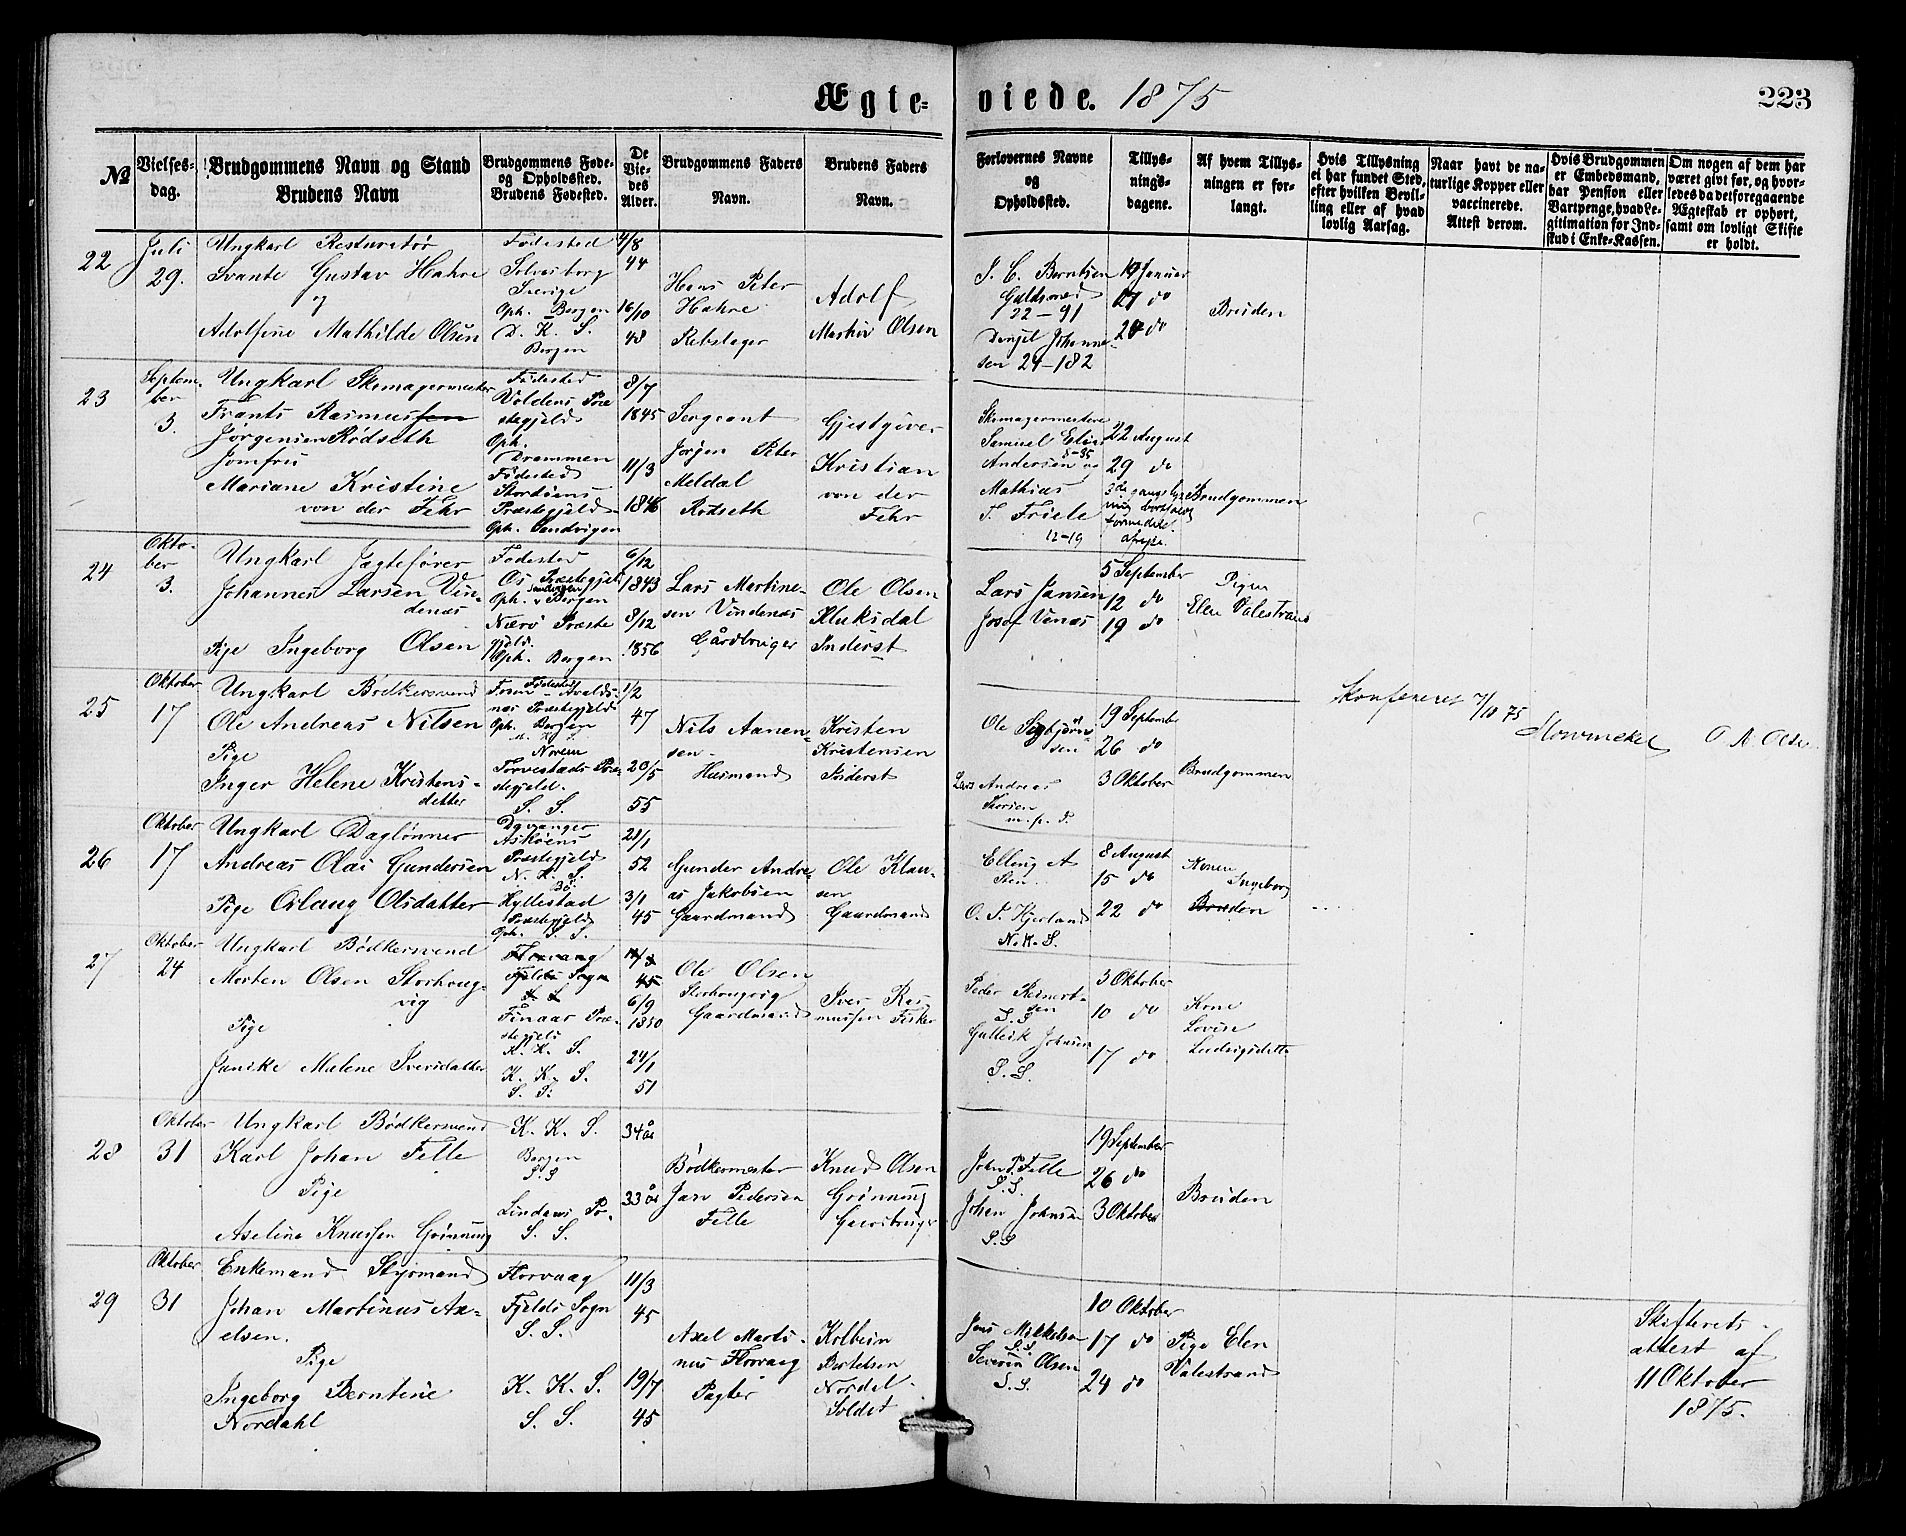 Ægte-
viede. 1875
223
№
Vielses-
dag.
Brudgommens Navn og Stand
Brudens Navn
Brudgommens Føde-
og Opholdssted.
Brudens Fødested.
De
Vie-
des
Alder.
Brudgommens Faders
Navn.
Brudens Faders
Navn.
Forlovernes Navne
og
Opholdssted.
Tillys-
nings-
dagene.
Af hvem Tillys-
ningen er for-
langt.
Hvis Tillysning
ei har fundet Sted,
efter hvilken Bevil-
ling eller af hvad
lovlig Aarsag.
Naar havt de na-
turlige Kopper eller
vaccinerede.
Attest derom.
Hvis Brudgommen
er Embedsmand,
har Pension eller
Vartpenge, hvad Le-
gitimation for Ind-
skud i Enke-Kassen.
Om nogen af dem har
været givt før, og hvor-
ledes da det foregaaende
Ægteskab er ophørt,
samt om lovligt Skifte
er holdt.
22
Juli
29.
Ungkarl Resturatør
Svante Gustav Hahre
og
Adolfine Mathilde Olsen
Fødested
Solvesborg
Sverige
Oph. Bergen
D. K. S.
Bergen
4/8
44
16/10
48
Hans Peter
Hahre
Rebslager
Adolf
Markus Olsen
J. C. Berntsen
Guldsmed
22-91
Daniel Johanne-
sen 24-182
Januar
do
do
Bruden
23
Septem-
ber
3.
Ungkarl Skomagermester
Frants Rasmussen
Jørgensen Rødseth
Jomfru
Mariane Kristine
von der Fehr
Fødested
Voldens Præ-
stegjeld
Oph.
Drammen
Fødested
Præstegjeld
Oph. Sandvigen
8/7
1845
11/3
1846
Sergeant
Jørgen Peter
Meldal
Rødseth
Gjestgiver
Kristian
von der
Fehr
Skomagermestere
Samuel Elias
Andersen
Mathias
T. Friele
12-19
22 August
29 do
3die gangs lys-
ning
Brudgommen
24
Okto-
ber
3.
Ungkarl Jagtefører
Johannes Larsen Vin-
denæs
Pige Ingeborg Olsen
Fødested
Os Præstegjeld
Oph. Bergen
Nærø Præste
gjeld.
Oph. Bergen
6/12
1843
8/12
1856
Lars Martine-
sen Vindenæs
Gårdbruger
Ole Olsen
Kluksdal
Inderst
Lars Jansen
Josef Vinæs
5 September
12 do
19 do
Pigen
Elen Valestrand
25
Oktober
17
Ungkarl Bødkersvend
Ole Andreas Nilsen
Pige
Inger Helene Kristens-
datter
Fødested
Avalds-
næs Præstegjeld
Oph. Bergen
Torvestads Præ-
stegjeld.
S. S.
1/2
47
20/5
55
Nils Aanen-
sen
Husmand
Kristen
Kristensen
Inderst
Ole
Lars Andreas
19 September
26 do
3 Oktober
Brudgommen
Skonfereret 7/10 75
O. A. Olsen
26
Oktober
17
Ungkarl Daglønner
Andreas Olai Gundersen
Pige Orlaug Olsdatter
Askøens
Præstegjeld
N. K. S.
Hyllestad
Præstegjeld
Oph. S. S.
21/1
52
3/1
45
Gunder Andre-
as Jakobsen
Gaardmand
Ole Klau-
sen
Gaardmand
Elling A
Sten
O. S. Hjerland
N. K. S.
8 August
15 do
22 do
Konen
Ingeborg
Bruden
27
Oktober
24
Ungkarl Bødkersvend
Morten Olsen Storhoug-
vig
Pige
Janike Malene Iversdatter
Florvaag
Fjelds Sogn
S. S.
Finaas Præ-
stegjeld
K. K. S.
K. K. S.
S. S.
45
6/9
1850
24/1
51
Ole Olsen
Storhougvig
Gaardmand
Iver Ras-
mussen Fisker
Peder Reinert-
sen
S. S
Gulleik Johnsen
S. S.
3 Oktober
10 do
17 do
Kone
Lovise
Ludvigsdatter
28
Oktober
31
Ungkarl Bødkersvend
Karl Johan Felle
Pige
Axeline Knudsen Grønning
K. K. S.
Bergen
S. S
Lindaas Pr.
S. S.
34 år
33 år
Bødkermester
Jan Pedersen
Felle
Knud Olsen
Grønning
Gaardbruger
John P. Felle
S. S.
Johan Johnsen
S. S
19 September
26 do
3 Oktober
Bruden
29
Oktober
31
Enkemand Styrmand
Johan Martinus Ax-
elsen.
Pige
Ingeborg Berntine
Nordahl
Florvaag
Fjelds Sogn
S. S.
K. K. S.
S. S.
11/3
45
19/7
45
Axel Marti-
nus Florvaag
Pagter
Kolbein
Bertelsen
Nordal
Soldat
Jens Mikkelsen
S. S.
Severin Olsen
S. S.
10 Oktober
17 do
24 do
Pige Elen
Valestrand
Skifterets-
attest af
11 Oktober
1875.